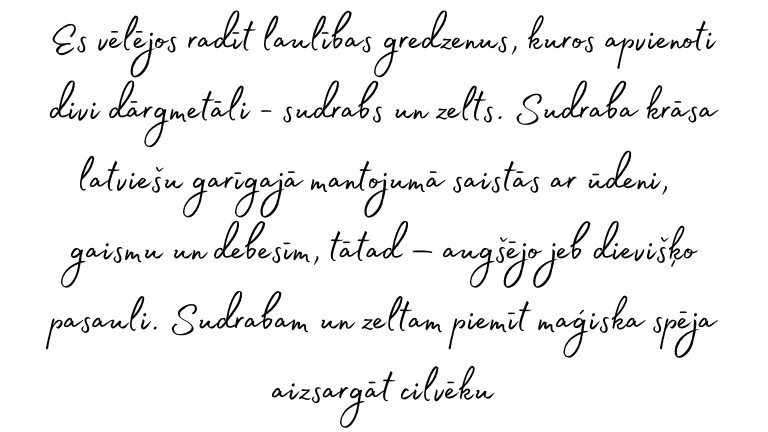 Es vēlējos radīt laulības gredzenus, kuros apvienoti
divi dārgmetāli - sudrabs un zelts. Sudraba krāsa
latviešu garīgajā mantojumā saistās ar ūdeni,
gaismu un debesīm, tātad – augšējo jeb dievišķo
pasauli. Sudrabam un zeltam piemīt maģiska spēja
aizsargāt cilvēku